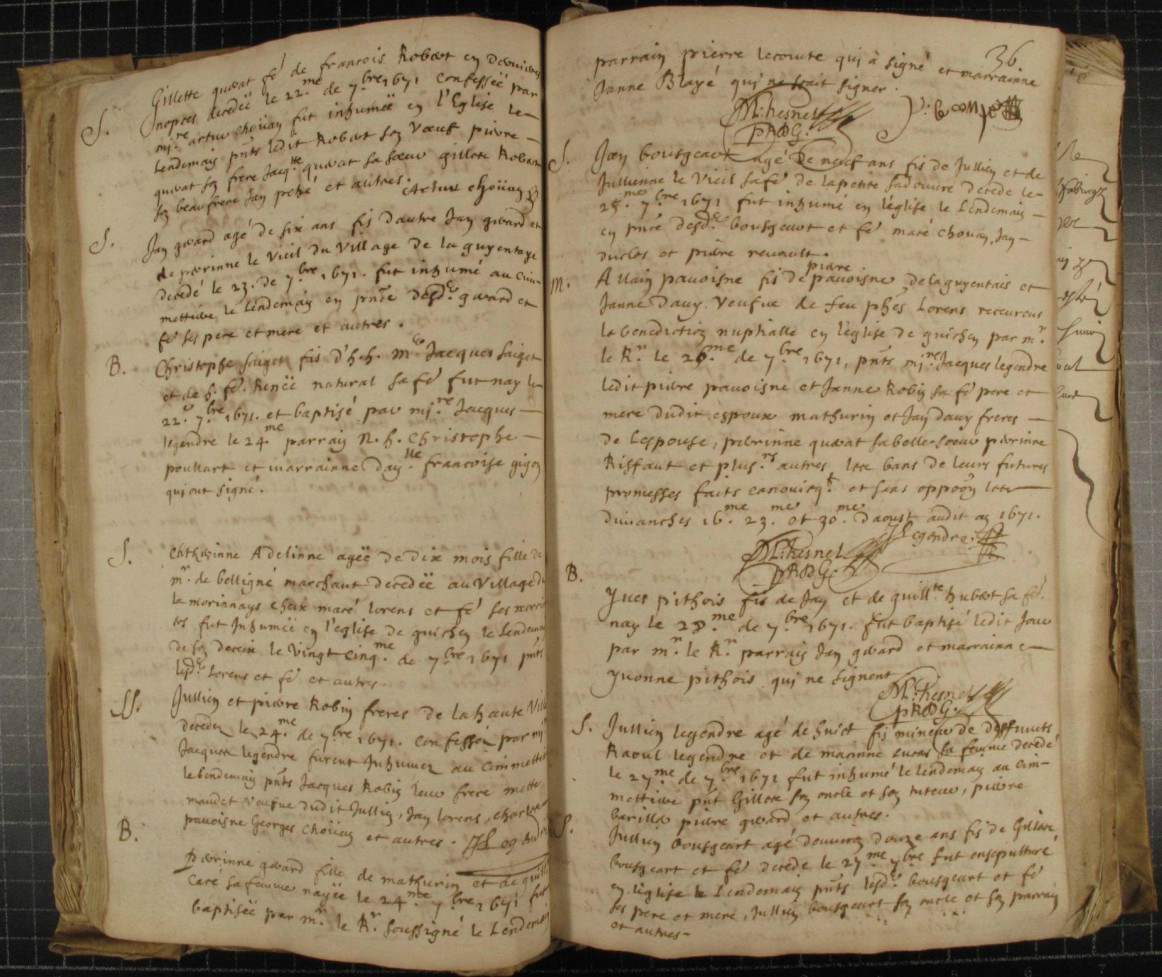 S.
Gillette quvat fé de francois Robert en
nopces, decedëe le 22.me de 7.bre 1671 Confessée par
mi.re artur chouan fut inhumëe en l'Eglise le
Lendemain pnts ledit Robert son vœuf, pierre
quvat son frere Jacq.tte quvat sa sœur gillette Robert
son beaufrere Jan et autres. Artur Choüan
S.
Jan gward agé de six ans fis d'autre Jan gward et
de perrinne le Vieil du Village de la guyentaye
decedé le 23. de 7.bre 1671. fut inhumé au Cim
mettiere le lendemain en pnce desd. gward et
fé ses pere et mere et autres.
B.
Christophe saiget fis d'h.h. m.e Jacques saiget
et de h. fé. Renëe natural sa fé fut nay le
22. 7.bre 1671. et baptisé par mi.re Jacques
legendre le 24.me parrain N. h. Christophe
poullart et marrainne dam.lle francoise
qui ont signé.
S.
Adelinne ageë de dix mois fille de
m.r de belligné marchant decedëe au Village de
la morinnays cheix macé lorens et fé
fut Inhumëe en l'eglise de guichen le Lendemain
de son decein le Vingt Cinq.me de 7.bre 1671 pnts
lesd. Lorens et fé et autres.
SS.
Jullien et pierre Robin freres de la haute Ville
decedez le 24.me de 7.bre 1671. Confessez par mi
Jacques legendre furent Inhumez au Cimmettiere
le lendemain pnts Jacques Robin leur frere
Veufue dudit Jullien, Jan lorens,
pauoisne Georges Choüan et autres.
B.
perrinne gward fille de mathurin et de
Caré sa femme nayëe le 24.me 7.bre 1671 fut
baptisëe par m.r le R.r soussigné le Lendemain
36.
parrain pierre lecomte qui à signé et marrainne
Janne Blayé qui ne scait signer.
M. Resnel
PRDG.
S.
Jan bourgeart agé de neuf ans fis de Jullien et de
Jullienne le Vieil sa fé de la petite decede le
25.me 7.bre 1671 fut inhumé en l'eglise le Lendemain
en pnce desd. bourgeart et fé macé chouan, Jan
duclos et pierre renault.
M.
Allain pauoisne fis de pierre pauoisne de la guyentais et
Janne Dauy Veufue de feu phes Lorens receurent
la benediction nuptialle en l'eglise de guichen par m.r
le R.r le 26.me de 7.bre 1671, pnts mi.re Jacques legendre
ledit pierre pauoisne et Janne Robin sa fé pere et
mere dudit espoux mathurin et Jan Dauy freres
de Lespouse, perrinne quvat sa belle sœur perrinne
Riffaut et plus.rs autres, les bans de leurs futures
promesses faits canonicq.t et sans oppoõn les
dimanches 16.me 23.me et 30.me daoust audit an 1671.
M. Resnel Legendre.
PRDG.
B.
Yues pithois fis de Jan et de guill.tte hubert sa fé.
nay le 28.me de 7.bre 1671. fut baptisé ledit Jour
par m.r le R.r parrain Jan gward et marrainne
yuonne pithois qui ne signent
M. Resnel
PRDG.
S.
Jullien legendre agé de huict fis mineur de deffuncts
Raoul legendre et de sa femme decedé
le 27.me de 7.bre 1671 fut inhumé le lendemain au Cim
mettiere pnt Gilles son oncle et son tuteur, pierre
pierre gward et autres.
S.
Jullien bourgeart agé denuiron douze ans fis de Gilles
bourgeart et fé decedé le 27.me 7bre fut ensepulturé
en l'eglise le Lendemain pnts lesd. bourgeart et fé
ses pere et mere, Jullien bourgeart son oncle et son parrain
et autres